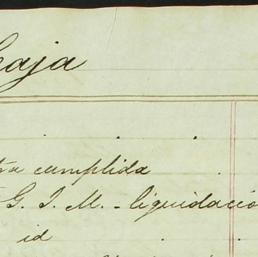 caja
cumplida
G. I. M. - liquidació
id